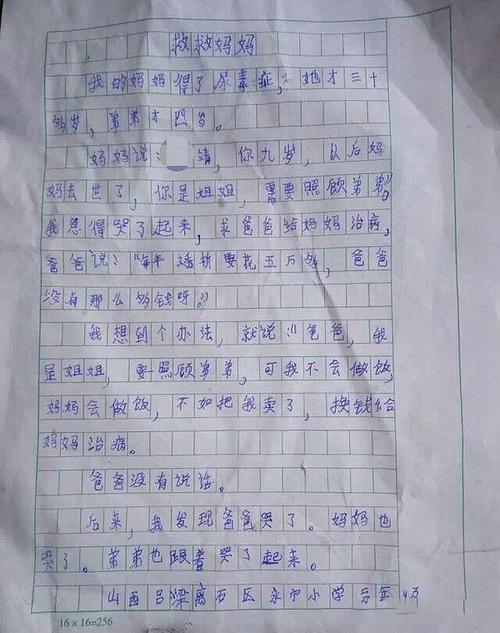 救救妈妈
我的妈妈得了尿毒症，她才三十
多岁，弟弟才四岁。
妈妈说：靖，你九岁，以后妈
妈去世了，你是姐姐，需要照顾弟弟，
我急得哭了起来，求爸爸给妈妈治病，
爸爸说：“每年透析要花五万多，爸爸
没有那么多钱呀。”
我想到个办法，就说：“爸爸，我
是姐姐，要照顾弟弟，可我不会做饭，
妈妈会做饭，不如把我卖了，换钱给
妈妈治病。
爸爸没有说话。
后来，我发现爸爸哭了。妈妈也
哭了。弟弟也跟着哭了起来。
山西吕梁离石区永宁小学三年
16×16=256